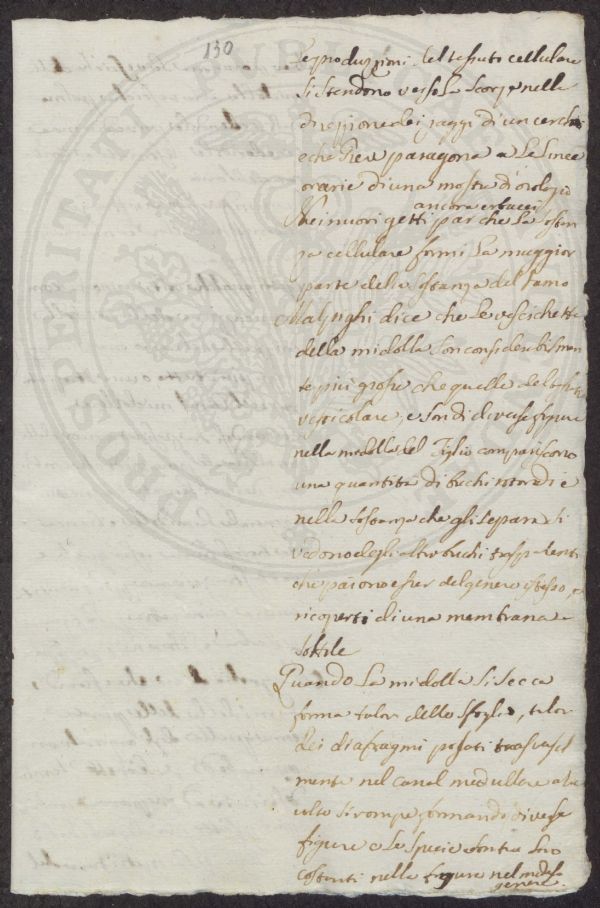 130
Le produzioni del tessuto cellulare
si stendono verso la scorza nelle
direzione dei raggi di un cerchio
e che Grew paragona a le linee
orarie di una mostra d'orologio
ancora erbacei
Nei nuovi getti par che la sostan
za cellulare formi la maggior
parte della sostanza del ramo
Malpighi dice che le vescichette
della midolla son considerabilmen
te più grosse che quelle del
vessicolare, e son di diverse figure
nella midolla del Tiglio compariscono
una quantità di buchi rotondi e
nella sostanza che gli separa si
vedono degli altri buchi trasparenti
che paiono esser del genere istesso, e
ricoperti di una membrana
sottile
Quando la midolla si secca
forma talor delle sfoglie, talor
dei diafragmi posati trasversal
mente nel canal medullare
si rompe formando diverse
figure e le specie son tra loro
costanti nella figura nel medesimo
genere.